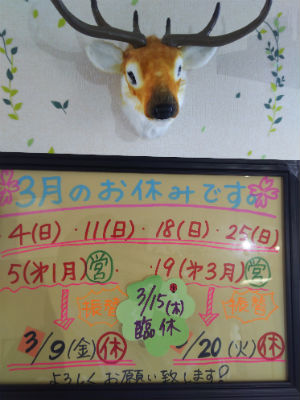 3月のお休みです。
4(日)・11(日)・18(日)・25(日)
5(第1月)営 19(第3月)営
振替 3/15(木) 振替
臨休
3/9(金)休 /20(火)休
よろしくお願い致します!